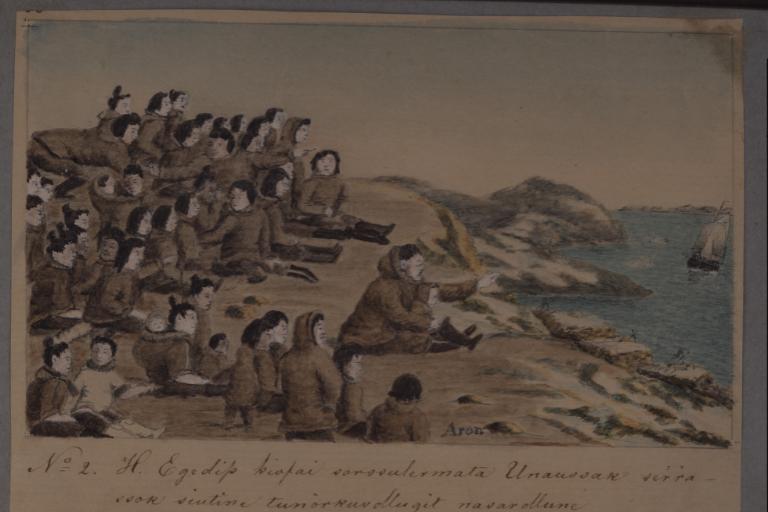 Aron
No 2. H. Egedip kiopai sorssulermata Unaussak serra-
ssok siutine tuniorkusdlugit nasardlune